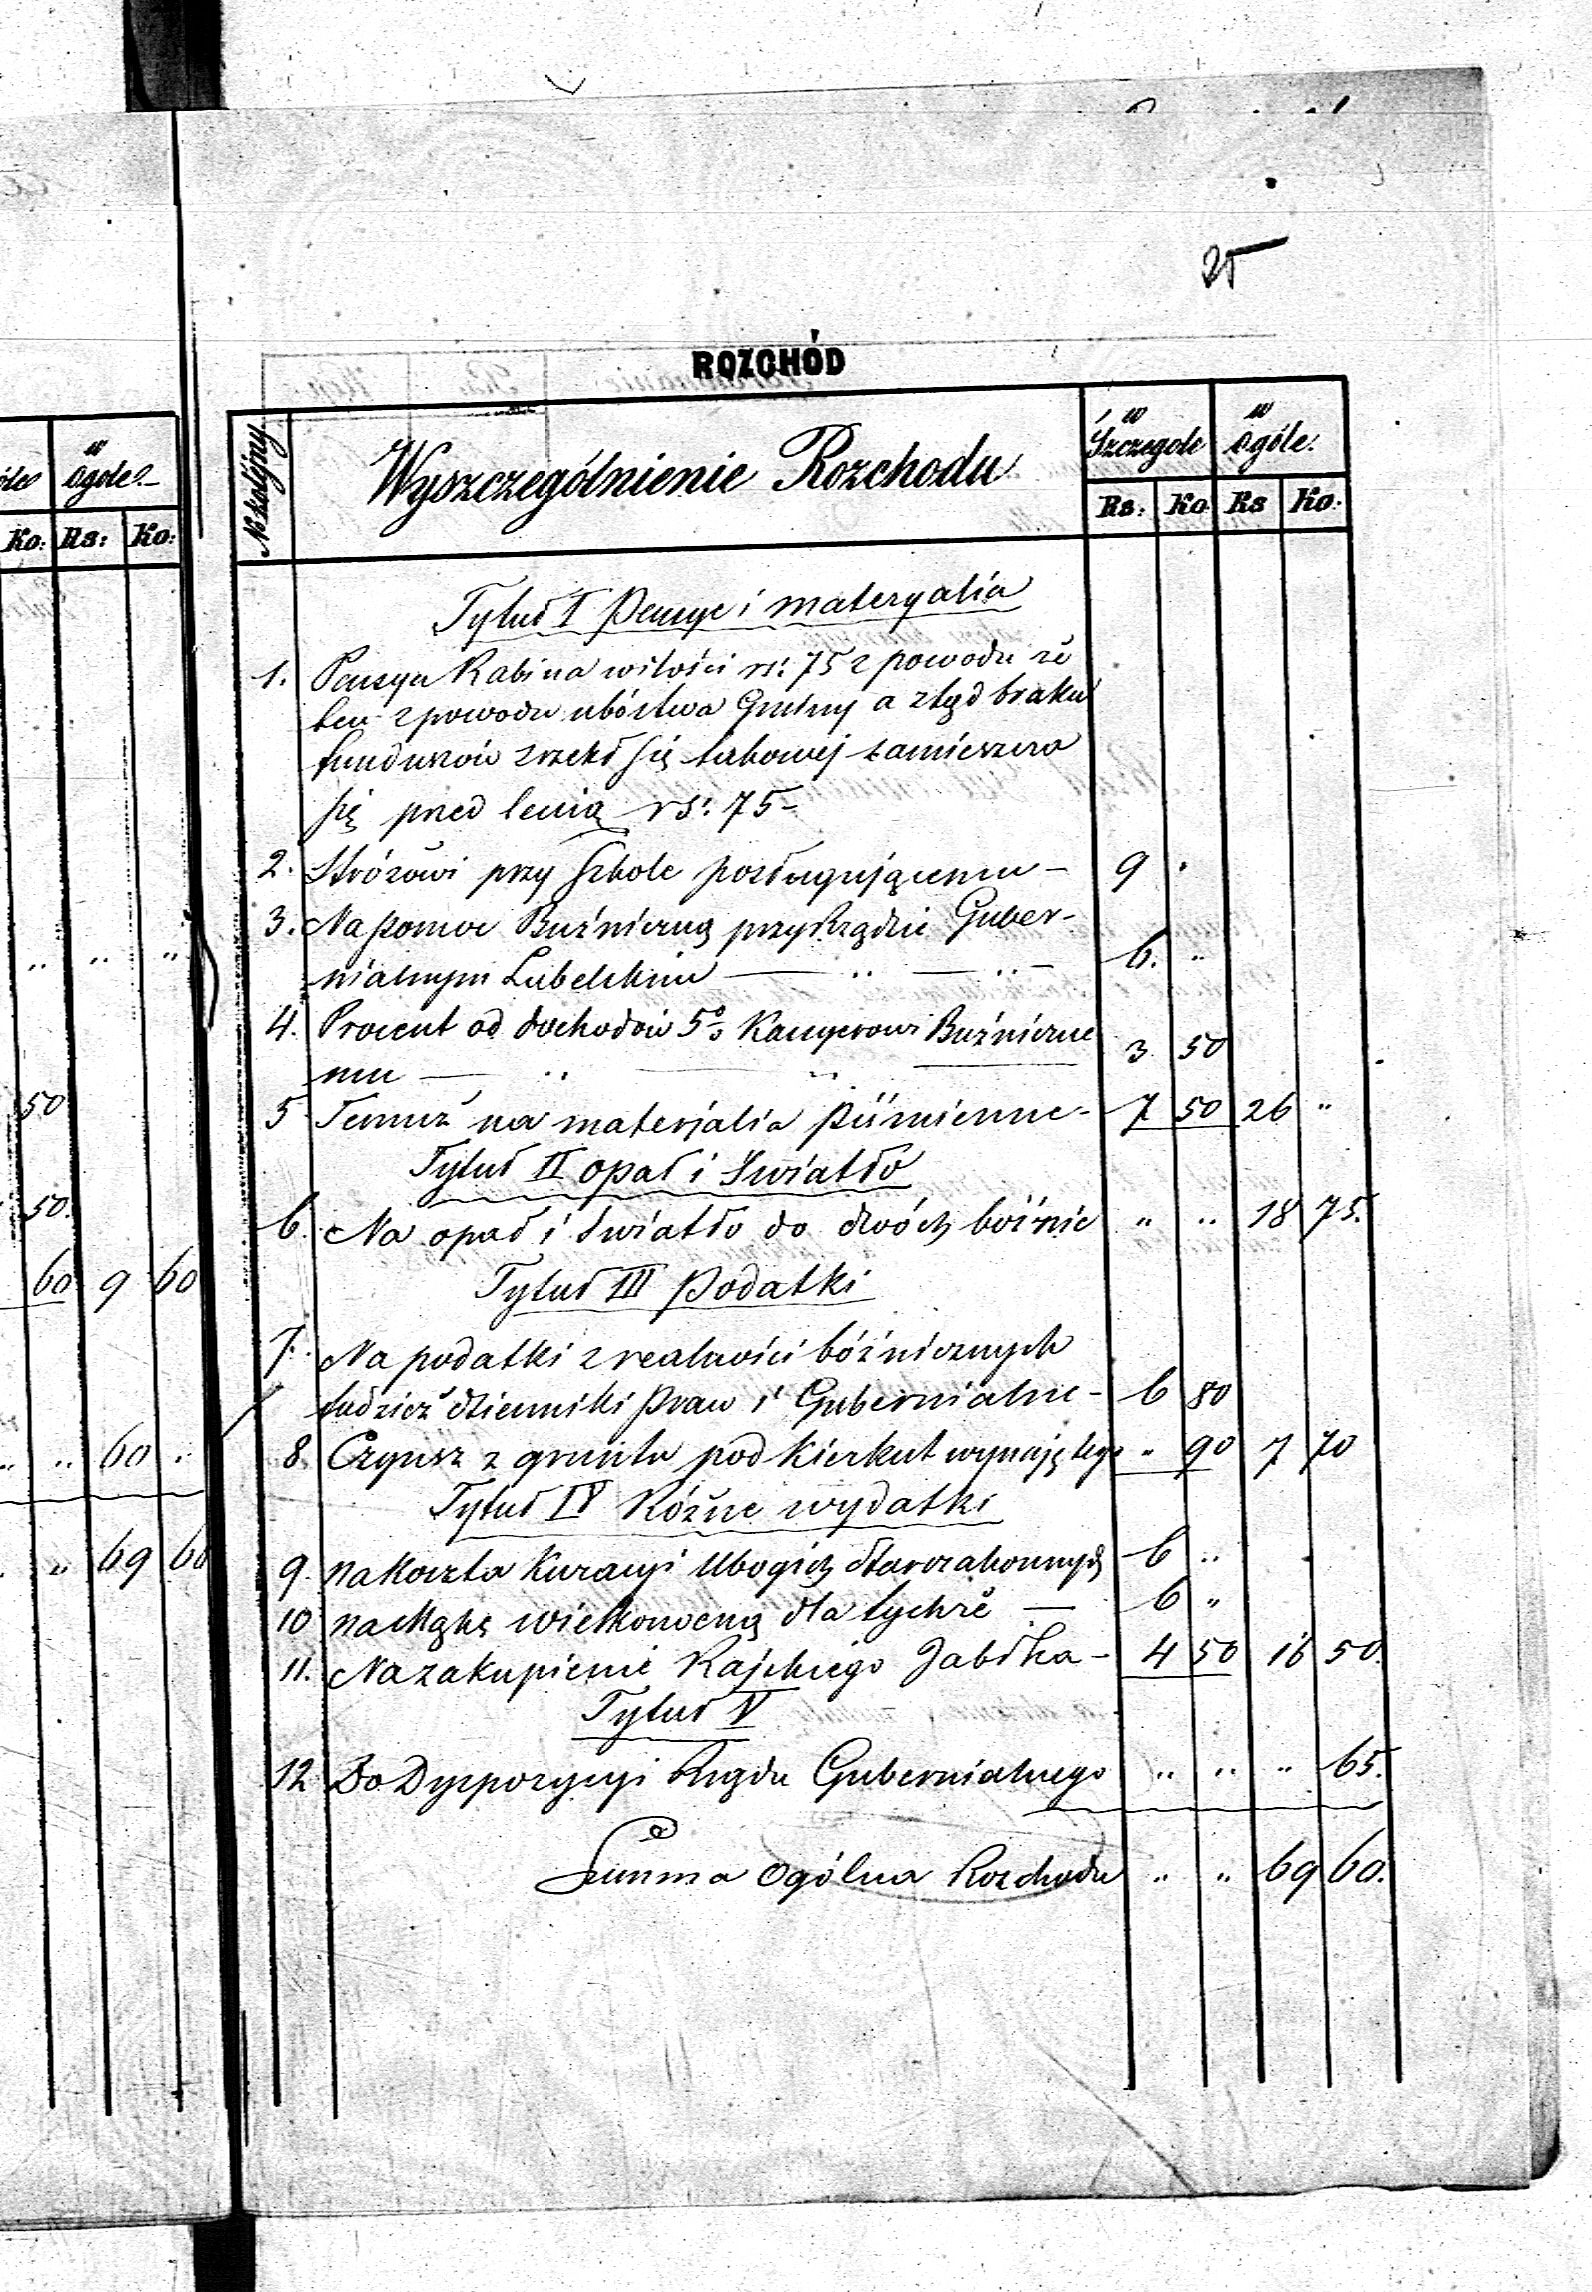 25
ROZCHÓD
No kolejny
Wyszczególnienie Rozchodu
w Szczegole
w Ogóle.
Rs: Ko Rs Ko.
ogole.
Ko: Rs: Ko:
Tytuł I Pensye i materyalia
1. Pensya Rabina wilości rs: 75 z powodu że
ten z powodu ubóstwa Gminy a ztąd braku
funduszów zrzekł się takowej zamieszcza
się pred lenią rs: 75-
2. Stróżowi przy Szkole posługującemu - 9 "
3. Na pomoc Buźniczną przy Rządzie Guber-
nialnym Lubelskim — " — " - 6. "
4. Procent od dochodów 5% Kassyerowi Buźniczne
mu — " — " 3 50
5 Temuż na materjalia piśmienne - 7 50 26 "
Tytuł II opał i Światło
6. Na opał i światło do dwóch bóźnic " " 18 75.
Tytuł III Podatki
7. Na podatki z realności bóźnicznych
tudzież dzienniki Praw i Gubernialne - 6 80
8 Czynsz z gruntu pod Kierkut wynajętego " 90 7 70
Tytuł IV Różne wydatki
9. na Koszta Kuracyi Ubogich starozakonnych 6 "
10 na Mąkę wielkonocną dla tychże — 6 "
11. Na zakupienie Rajskiego Jabłka - 4 50 16 50.
Tytuł V
12 Do Dyspozycyi Rządu Gubernialnego " " " 65.
Summa Ogólna Rozchodu " " 69 60.
" " "
50
50.
60 9 60
" " 60 "
" 69 60